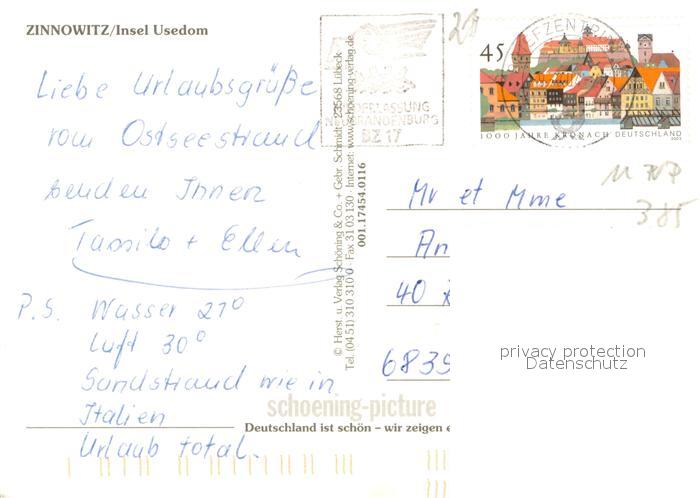 ZINNOWITZ/Insel Usedom
Liebe Urlaubsgrüße
vom Ostseestrand
senden Ihnen
Tassilo + Ellen
P.S. Wasser 21°
Luft 30°
Sandstrand wie in
Italien
Urlaub total.
© Herst. u. Verlag Schöning & Co. + Gebr. Schmidt · 23568 Lübeck
Tel. (04 51) 310 310 0 · Fax 31 03 130 · Internet: www.schoening-verlag.de
001.17454.0116
NIEDERLASSUNG
NEUBRANDENBURG
BZ 17
BRIEFZENTRUM
45
1000 JAHRE KRONACH DEUTSCHLAND
2003
385
Mr et Mme
An
40
6839
privacy protection
Datenschutz
schoening-picture
Deutschland ist schön – wir zeigen e